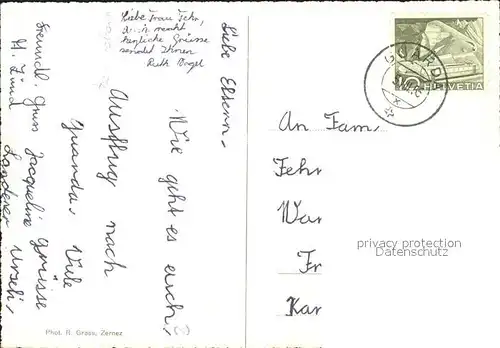 Liebe Frau Fehr,
herzliche Grüsse
sendet Ihnen
Ruth Vogel
Liebe Eltern,
Wie geht es euch,
Ausflug nach
Guarda. Viele
Grüsse Ursch,
Freundl. Gruss Jacqueline
H. Zünd
Landerer
GUARD
HELVETIA
An Fam,
Fehr
War
Fr
Kar
privacy protection
Datenschutz
Phot. R. Grass, Zernez